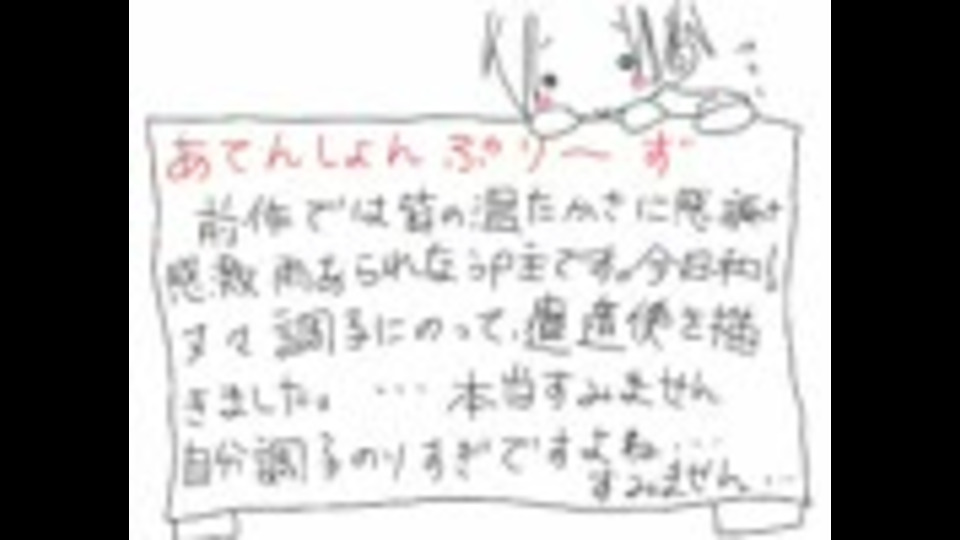 あてんしょん ぷり〜ず
前作では皆の温たかさに感謝
感激 雨あられなうp主です。今回
調子にのって、遣唐使を描
きました。… 本当すみません
自分調子のりすぎですよね…
すみません…